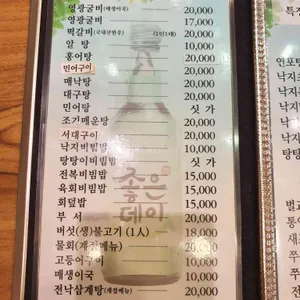 영광굴비(매생이국) 20,000
영광굴비 17,000
떡갈비(국내산한우) (1인1대) 20,000
알탕 20,000
홍어탕 20,000
민어구이 20,000
매낙탕 20,000
대구탕 20,000
민어탕 싯가
조기매운탕 20,000
서대구이 20,000
낙지비빔밥 20,000
탕탕이비빔밥 싯가
전복비빔밥 15,000
육회비빔밥 15,000
회덮밥 15,000
부서 20,000
버섯(생)불고기 (1인) 18,000
물회(계절메뉴) 20,000
고등어구이 20,000
매생이국 10,000
전낙삼계탕(계절메뉴) 20,000
좋은
데이
특
연포탕
낙지
낙지
탕탕
벌교
통
새
쭈
쭈